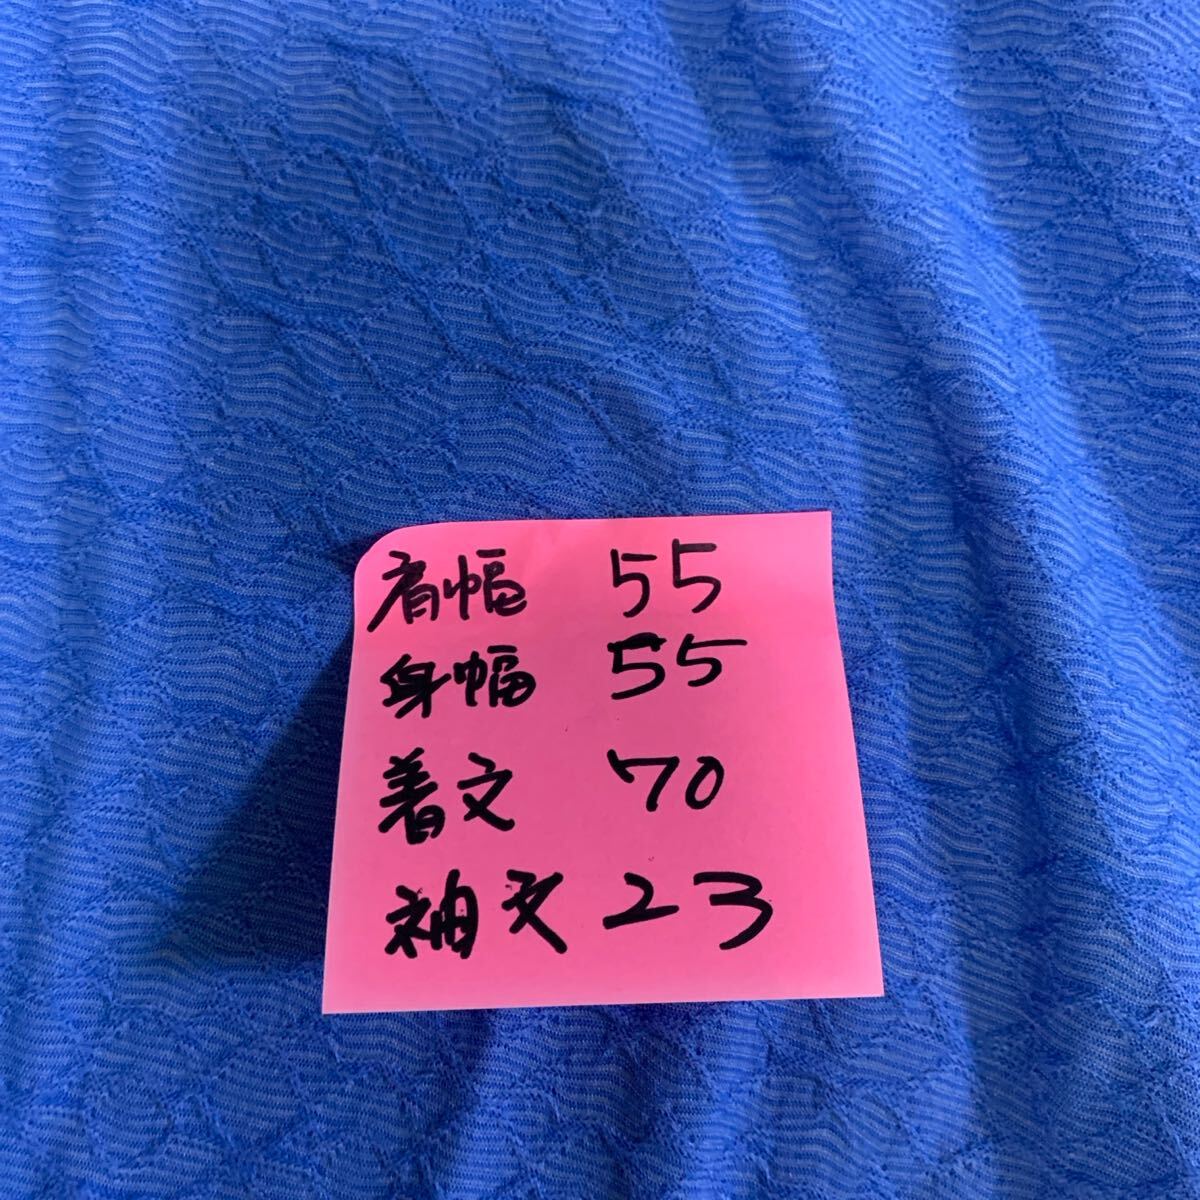 肩幅 55
身幅 55
着丈 70
袖丈 23